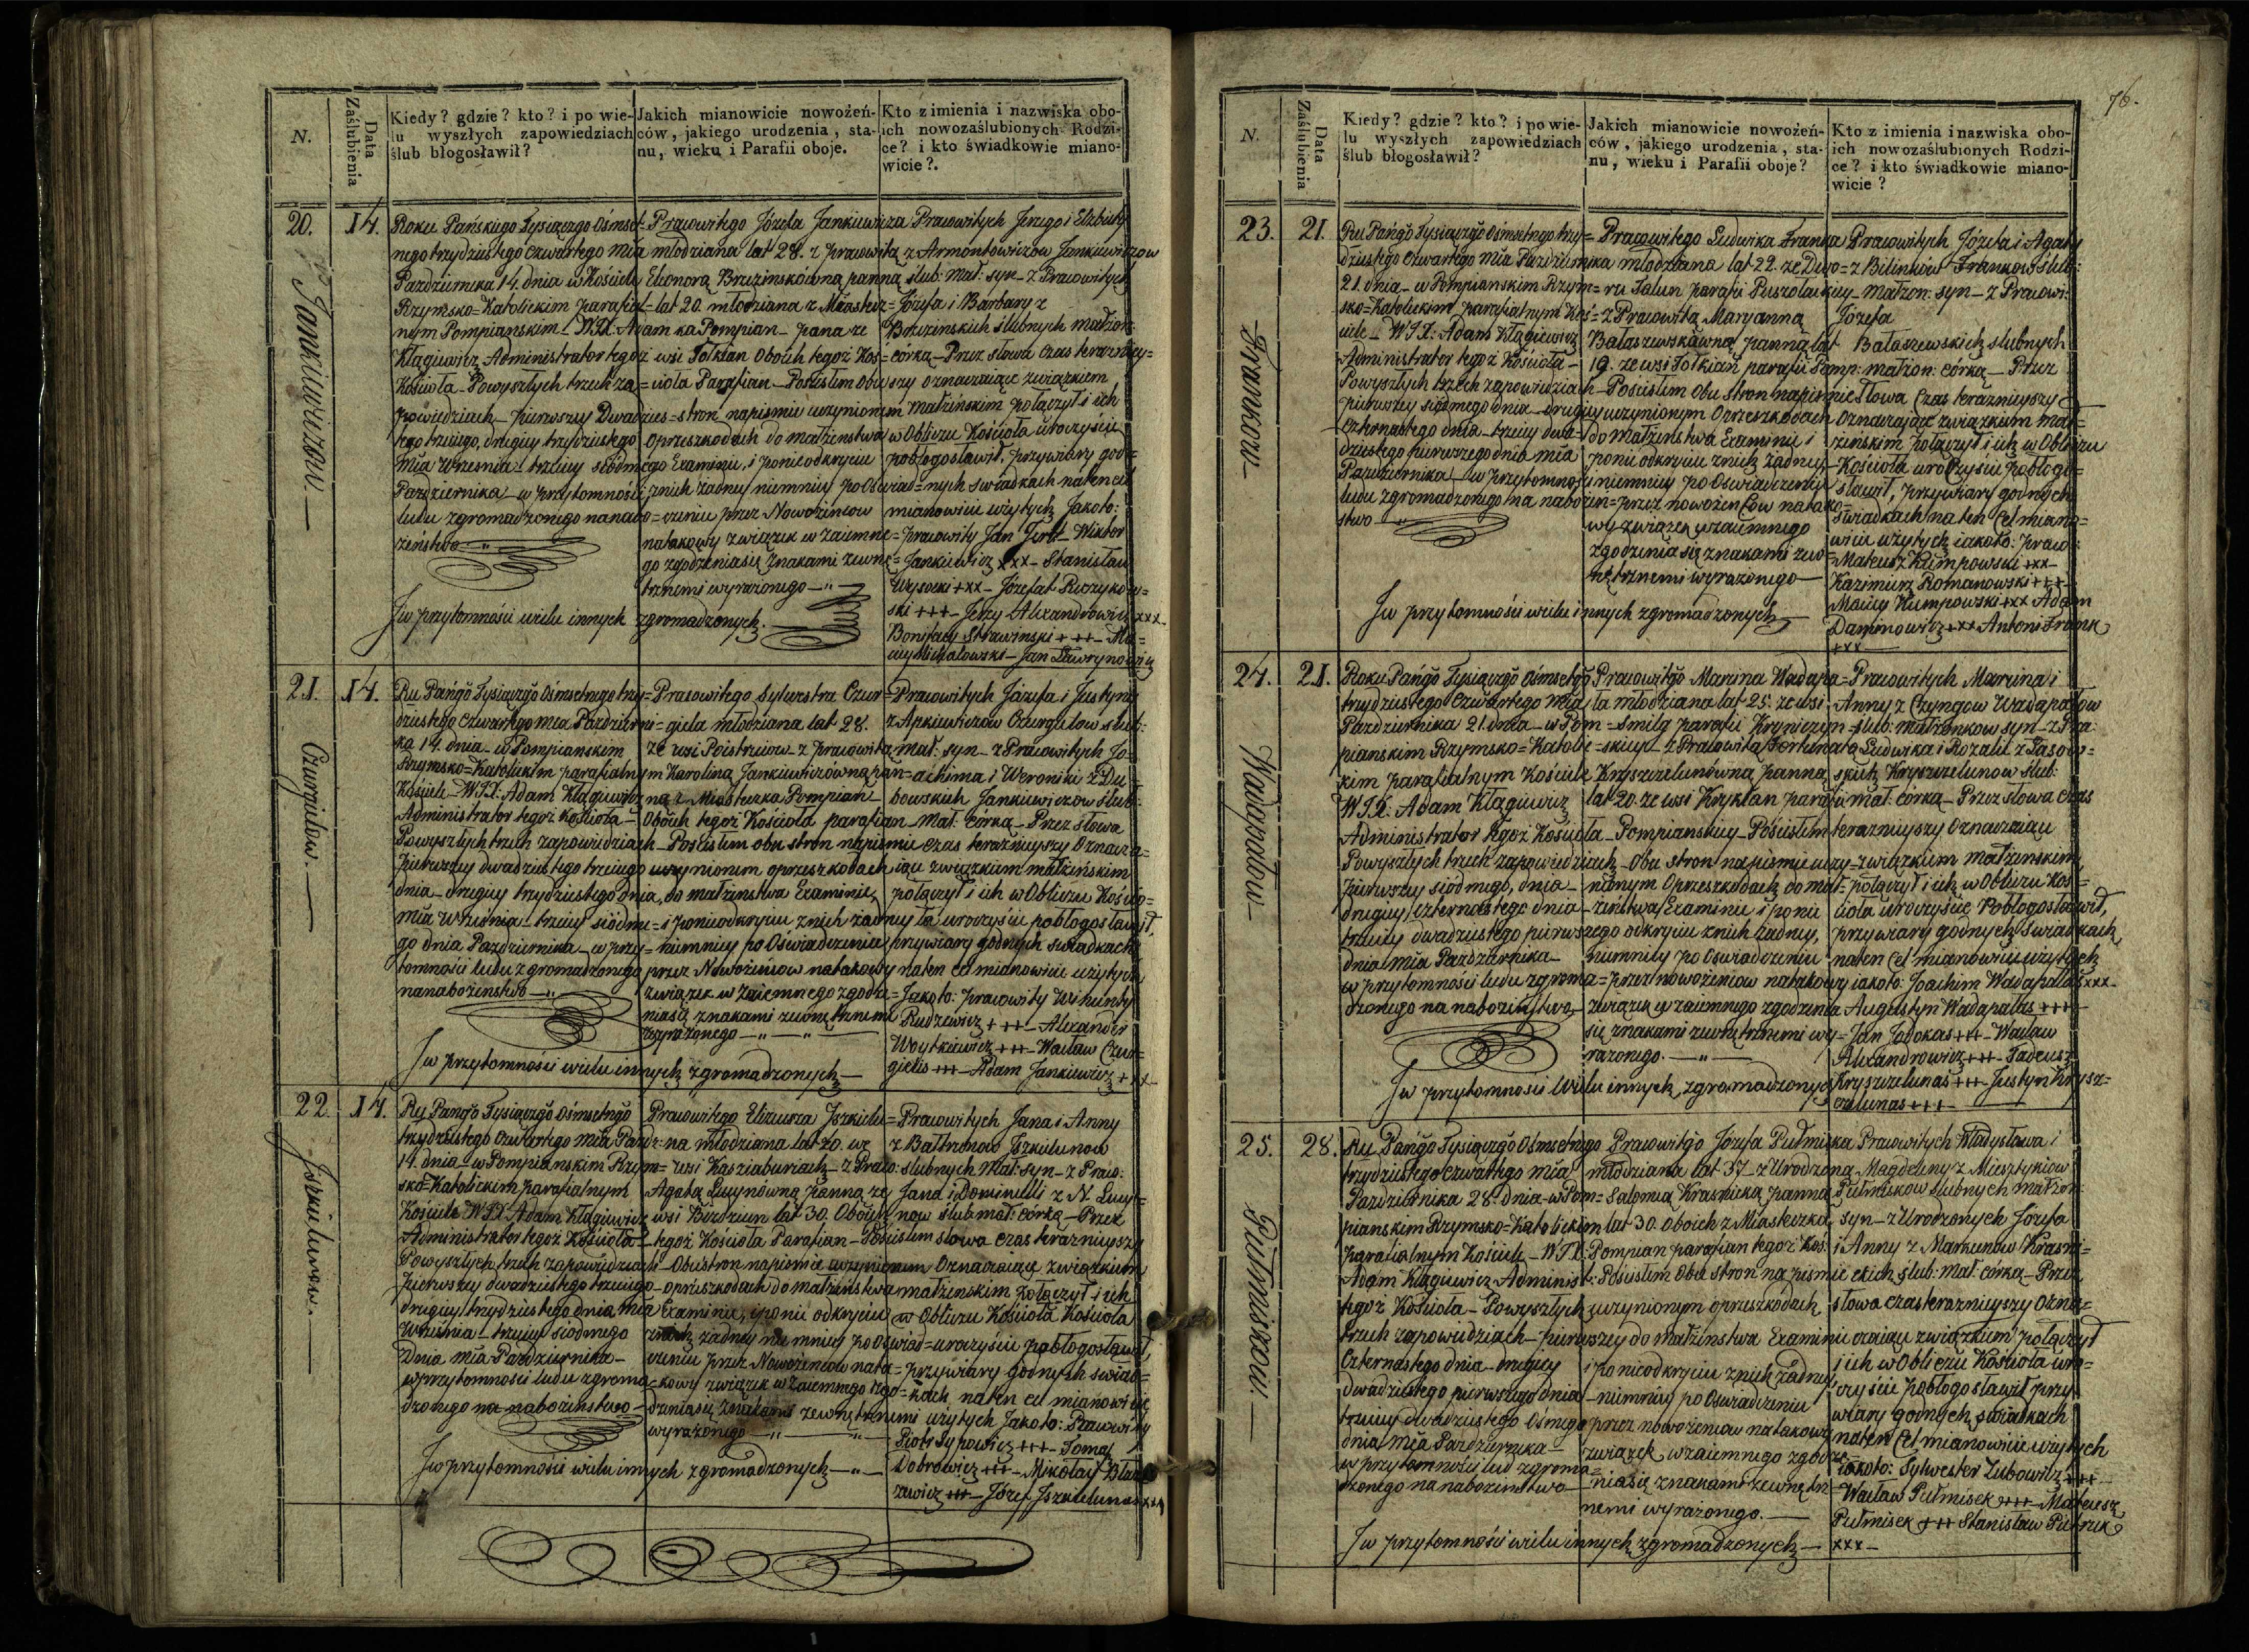 N.
Data Zaślubienia
Kiedy? gdzie? kto? i po wie-
lu wyszłych zapowiedziach
ślub błogosławił?
Jakich mianowicie nowożeń-
ców, jakiego urodzenia, sta-
nu, wieku i Parafii oboje.
Kto z imienia i nazwiska obo-
ich nowozaślubionych Rodzi-
ce? i kto świadkowie miano-
wicie?.
20.
14.
Jankiewiczow.
Roku Pańskiego Tysiącznego Ośmset-
nego trzydziestego czwartego Mca
Pazdziernika 14. dnia w Kościele
Rzymsko=Katolickim parafial-
nym Pompianskim – WJX. Adam
Kłągiewicz Administrator tegoż
Kościoła – Powyszłych trzech za=
powiedziach – pierwszey Dwadzies=
tego trzeciego, drugiey trzydziestego
Mca Wrzesnia – trzeciey siódmego
Pazdziernika – w przytomności
ludu zgromadzonego na nabo=
żeństwo
Pracowitego Józefa Jankiewicza
młodziana lat 28. z pracowitą
Eleonorą Brzezinskówną panną
lat 20. młodziana z Miastecz=
ka Pompian – pana ze
wsi Tolkian Oboich tegoż Koś=
cioła Parafian – Poscisłem Obu
stron napiśmie uczynionem
Oprzeszkodach do małżenstwa
Examinie, i ponieodkryciu
znich żadney niemniey po Oswiad=
czeniu przez Nowożeńcow
natakowy związek w zaiemne=
go zgodzenia się znakami zewnę=
trznemi wyrażonego
Pracowitych Jerzego i Elżbiety
z Armontowiczow Jankiewiczow
ślub: Mał: syn – z Pracowitych
Józefa i Barbary z
Brzezinskich ślubnych małżon:
córką – Przez słowa czas terazniey=
szy oznaczaiące związkiem
małżeńskim połączył i ich
w Obliczu Kościoła uroczyście
pobłogosławił, przy wiary god=
nych świadkach na ten cel
mianowicie użytych Jakoto:
pracowity Jan – Wiktor
Jankiewicz xxx – Stanisław
Wysocki +xx – Józefat Ruczykow=
ski +++ – Jerzy Alexandrowicz xxx
Bonifacy Strawinski +++ – Ma=
ciey Michałowski – Jan Ławrynowicz
J w przytomności wielu innych zgromadzonych.
21.
14.
Czurgielow.
Ru Pańgo Tysiączgo Ośmsetnego trzy=
dziestego czwartego mca Pazdzierni=
ka 14. dnia – w Pompianskim
Rzymsko=Katolickim parafialnym
Kościele – WJX. Adam Kłągiewicz
Administrator tegoż Kościoła –
Powyszłych trzech zapowiedziach –
pierwszey dwadziestego trzeciego
dnia – drugiey trzydziestego dnia,
mca Wrzesnia – trzeciey siódme=
go dnia Pazdziernika – w przy=
tomności ludu zgromadzonego
na nabożenstwo
Pracowitego Sylwestra Czur=
giela młodziana lat 28.
ze wsi Poistrzciow – z pracowitą
Karoliną Jankiewiczówną pan=
ną z Miasteczka Pompian –
Oboich tegoż Kościoła parafian –
Poscisłem obu stron napiśmie
uczynionem oprzeszkodach
do małżenstwa Examinie,
i ponieodkryciu znich żadney
niemniey po Oświadczeniu
przez Nowożeńcow natakowy
związek w zaiemnego zgodze=
nia się znakami zewnętrznemi
wyrażonego
Pracowitych Józefa i Justyny
z Apkiewiczow Czurgielow ślub:
mał: syn – z Pracowitych Jo=
achima i Weroniki z Du=
bowskich Jankiewiczow ślub:
Mał: córką – Przez słowa
czas teraznieyszy Oznacza=
iące związkiem małżeńskim
połączył i ich w Obliczu Kościo=
ła uroczyście pobłogosławił,
przy wiary godnych świadkach
na ten cel mianowicie użytych
Jakoto: pracowity Wikenty
Rudzewicz +++ – Alexander
Woytkiewicz +++ – Wacław Czur=
gielis +++ – Adam Jankiewicz +xx
J w przytomności wielu innych zgromadzonych –
22.
14.
Jszkielunow.
Ru Pańgo Tysiączgo Ośmsetngo
trzydziestego czwartego mca Pazdz:
14. dnia – w Pompianskim Rzym=
sko=Katolickim parafialnym
Kościele WJX. Adam Kłągiewicz
Administrator tegoż Kościoła –
Powyszłych trzech zapowiedziach –
pierwszey dwadziestego trzeciego –
drugiey trzydziestego dnia mca
Września – trzeciey siódmego
Dnia mca Pazdziernika –
w przytomności ludu zgroma=
dzonego na nabożeństwo –
Pracowitego Elizeusza Jszkielu=
na młodziana lat 20. we
wsi Kaziaburiach – z Praco:
Agatą Lucynówną panną ze
wsi Birdziun lat 30. Oboich
tegoż Kościoła Parafian – Poscisłem
Obu stron napiśmie uczynionem
oprzeszkodach do małżeństwa
Examinie, i ponieodkryciu
znich żadney niemniey po Oswiad=
czeniu przez Nowożeńcow nata=
kowy związek w zaiemnego zgo=
dzenia się znakami zewnętrznemi
wyrażonego
Pracowitych Jana i Anny
z Baltronow Jszkielunow
slubnych Mał: syn – z Praco:
Jana i Dominelli z N. Lucy=
now ślub: mał: córką – Przez
słowa czas teraznieyszy
Oznaczaiące związkiem
małżenskim połączył i ich
w Obliczu Kościoła Kościoła
uroczyście pobłogosławił,
przy wiary godnych świad=
kach, na ten cel mianowicie
użytych Jakoto: Pracowity
Piotr Sypowicz +++ – Tomasz
Dobrowicz +++ – Mikołay
zewicz +++ – Józef Jszkielunas xxx
J w przytomności wielu innych zgromadzonych –
76.
N.
Data Zaślubienia
Kiedy? gdzie? kto? i po wie-
lu wyszłych zapowiedziach
ślub błogosławił?
Jakich mianowicie nowożeń-
ców, jakiego urodzenia, sta-
nu, wieku i Parafii oboje?
Kto z imienia i nazwiska obo-
ich nowozaślubionych Rodzi-
ce? i kto świadkowie miano-
wicie?
23.
21.
Frankow.
Ru Pańgo Tysiączgo Ośmsetnego trzy=
dziestego czwartego Mca Pazdziernika
21. dnia – w Pompianskim Rzym=
sko=Katolickim parafialnym Koś=
ciele – WJX: Adam Kłągiewicz
Administrator tegoż Kościoła –
Powyszłych trzech zapowiedziach –
pierwszey siódmego dnia – drugiey
czternastego dnia – trzeciey dwa=
dziestego pierwszego dnia mca
Pazdziernika – w przytomności
ludu zgromadzonego na nabożeń=
stwo
Pracowitego Ludwika Franka
młodziana lat 22. ze Dwo=
ru Talun parafii Puszołackiey –
z Pracowitą Maryanną
Bałaszewskówną panną lat
19. ze wsi Tolkian parafii Pomp:
Poscisłem Obu stron napiśmie
uczynionym Oprzeszkodach
do Małżenstwa Examinie i
ponieodkryciu znich żadney
niemniey po Oswiadczeniu
przez nowożencow natako=
wy związek wzaiemnego
zgodzenia się znakami zew=
nętrznemi wyrażonego –
Pracowitych Józefa i Agaty
z Bilinkow Frankow ślub:
Małżon: syn – z Pracowi:
Józefa
Bałaszewskich ślubnych
małżon: córką – Przez
słowa czas teraznieyszy
Oznaczaiące związkiem mał=
żeńskim połączył i ich w Obliczu
Kościoła uroczyście pobłogo=
sławił, przy wiary godnych
świadkach na ten cel miano=
wicie użytych iakoto: praw:
Mateusz Kumpowski +xx –
Kazimierz Romanowski +++
Maciey Kumpowski +xx Adam
Daminowicz +xx Antoni Frank
+xx
J w przytomności wielu innych zgromadzonych
24.
21.
Wadapałow
Roku Pańgo Tysiączgo Ośmsetgo
trzydziestego czwartego Mca
Pazdziernika 21. dnia – w Pom=
pianskim Rzymsko=Katolic=
kim parafialnym Kościele
WJX. Adam Kłągiewicz
Administrator tegoż Kościoła –
Powyszłych trzech zapowiedziach –
pierwszey siódmego, dnia –
drugiey czternastego dnia –
trzeciey dwadziestego pierwszego
dnia mca Pazdziernika –
w przytomności ludu zgroma=
dzonego na nabożeństwo
Pracowitgo Marcina Wadapa=
ła młodziana lat 25. ze wsi
Smilg parafii Krynczyn=
skiey – z Pracowitą Fortunatą
Kryszczelunówną panną
lat 20. ze wsi Krykłan parafii
Pompianskiey – Poscisłem
Obu stron napiśmie uczy=
nionym Oprzeszkodach do mał=
żeństwa Examinie i ponie
odkryciu znich żadney,
niemniey po Oswiadczeniu
przez nowożencow natakowy
związek w zaiemnego zgodzenia
się znakami zewnętrznemi wy=
rażonego. –
Pracowitych Marcina i
Anny z Czyngow Wadapałow
ślub: małżonkow syn – z Pra:
Ludwika i Rozalii z Jasow=
skich Kryszczelunow ślub:
mał: córką – Przez słowa czas
teraznieyszy Oznaczaiące
związkiem małżenskim
połączył i ich w Obliczu Koś=
cioła uroczyście Pobłogosławił,
przy wiary godnych świadkach,
na ten cel mianowicie użytych
iakoto: Joachim Wadapałas xxx –
Augustyn Wadapałas +++ –
Jan Jodokas +++ – Wacław
Alexandrowicz +++ – Tadeusz
Kryszczelunas +++ – Justyn Krysz=
czelunas +++ –
J w przytomności Wielu innych zgromadzonych
25.
28.
Pułmiszow.
Ru Pańgo Tysiączgo Ośmsetnego
trzydziestego czwartego mca
Pazdziernika 28. dnia – w Pom=
pianskim Rzymsko=Katolickim
parafialnym Kościele – WJX.
Adam Kłągiewicz Administ:
tegoż Kościoła – Powyszłych
trzech zapowiedziach – pierwszey
Czternastego dnia – drugiey
dwadziestego pierwszego dnia –
trzeciey dwadziestego Osmego
dnia mca Pazdziernika –
w przytomności lud zgroma=
dzonego na nabożeństwo –
Pracowitgo Józefa Pułmiska
młodziana lat 37 – z Urodzoną
Salomeą Krasnicką panną
lat 30. oboich z Miasteczka
Pompian parafian tegoż Koś:
Poscisłem Obu stron na piśmie
uczynionym oprzeszkodach
do Małżenstwa Examinie
i ponieodkryciu znich żadney
niemniey po Oswiadczeniu
przez nowożencow natakowy
związek wzaiemnego zgodze=
nia się znakami zewnętrz=
nemi wyrażonego. –
Pracowitych Władysława i
Magdeleny z Miesztykiow
Pułmiskow ślubnych małżon:
syn – z Urodzonych Józefa
i Anny z Markunow Krasni=
ckich ślub: mał: córką – Przez
słowa czas teraznieyszy Ozna=
czaiące związkiem połączył
i ich w Obliczu Kościoła uro=
czyście pobłogosławił przy
wiary godnych świadkach
na ten cel mianowicie użytych
iakoto: Sylwester Zubowicz +++
Wacław Pułmisek +++ – Mateusz
Pułmisek +++ Stanisław Pietrzuk
xxx –
J w przytomności wielu innych zgromadzonych –